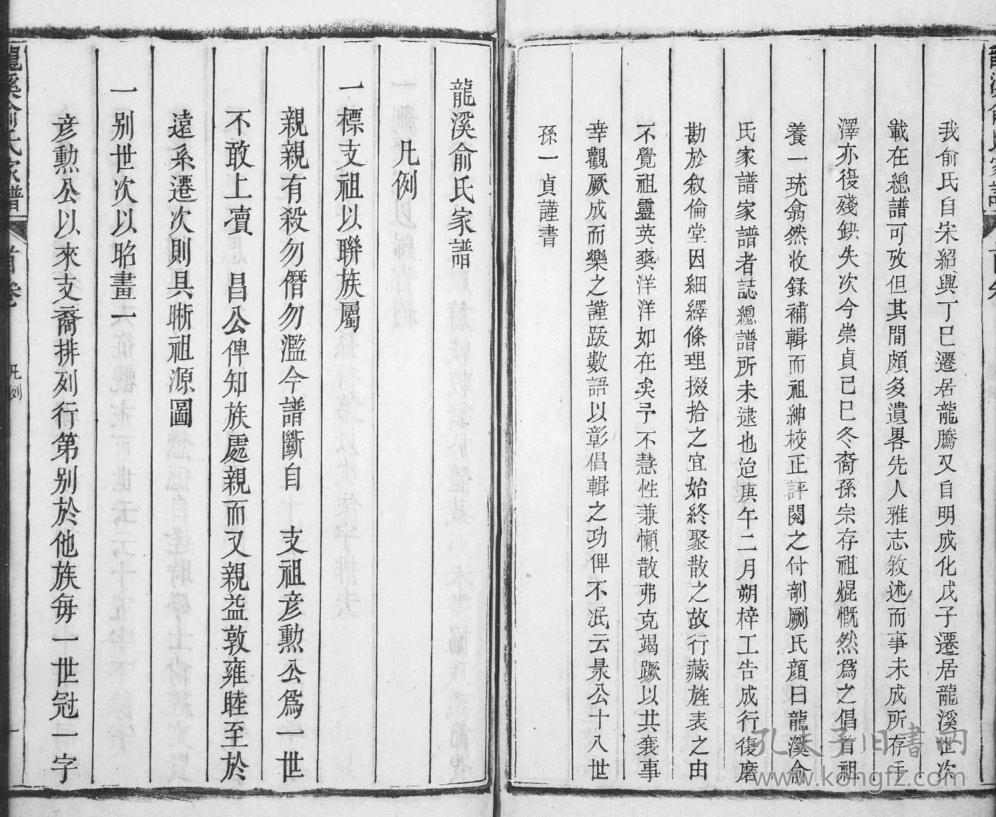 我俞氏自宋紹興丁巳遷居龍騰又自明成化戊子遷居龍溪世次
載在總譜可攷但其間頗多遺畧先人雅志敘述而事未成所存手
澤亦復殘缺失次今崇貞己巳冬裔孫宗存祖焜慨然為之倡首祖
養一琉翕然收錄補輯而祖紳校正評閱之付剞劂氏顏曰龍溪俞
氏家譜家譜者誌總譜所未逮也迨庚午二月朔梓工告成行復磨
勘於敘倫堂因細繹條理掇拾之宜始終聚散之故行藏旌表之由
不覺祖靈英爽洋洋如在矣予不慧性兼懶散弗克竭蹶以共襄事
幸觀厥成而樂之謹跋數語以彰倡輯之功俾不泯云景公十八世
孫一貞謹書
龍溪俞氏家譜
一凡例
一標支祖以聯族屬
親親有殺勿僭勿濫今譜斷自 支祖彥勲公為一世
不敢上瀆 昌公俾知族處親而又親益敦雍睦至於
遠系遷次則具晰祖源圖
一别世次以昭畫一
彥勲公以來支裔排列行第别於他族每一世冠一字
龍溪俞氏家譜 首卷 凡例 一
孔夫子旧书网
www.kongfz.com